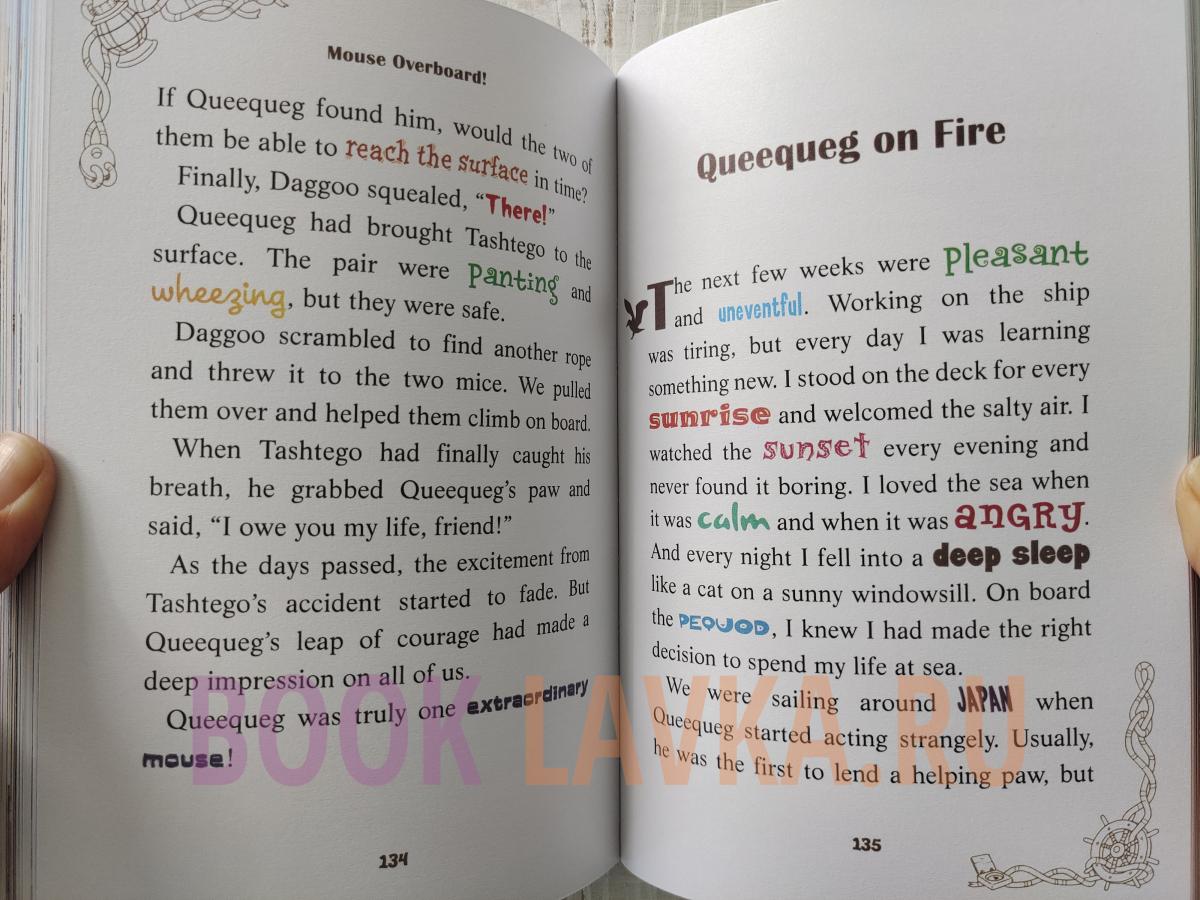 Mouse Overboard!
If Queequeg found him, would the two of
them be able to reach the surface in time?
Finally, Daggoo squealed, “There!”
Queequeg had brought Tashtego to the
surface. The pair were Panting and
wheezing, but they were safe.
Daggoo scrambled to find another rope
and threw it to the two mice. We pulled
them over and helped them climb on board.
When Tashtego had finally caught his
breath, he grabbed Queequeg’s paw and
said, “I owe you my life, friend!”
As the days passed, the excitement from
Tashtego’s accident started to fade. But
Queequeg’s leap of courage had made a
deep impression on all of us.
Queequeg was truly one extraordinary
mouse!
134
Queequeg on Fire
The next few weeks were Pleasant
and uneventful. Working on the ship
was tiring, but every day I was learning
something new. I stood on the deck for every
sunrise and welcomed the salty air. I
watched the sunset every evening and
never found it boring. I loved the sea when
it was calm and when it was ANGRY.
And every night I fell into a deep sleep
like a cat on a sunny windowsill. On board
the PEQUOD, I knew I had made the right
decision to spend my life at sea.
We were sailing around JAPAN when
Queequeg started acting strangely. Usually,
he was the first to lend a helping paw, but
135
BOOK LAVKA.RU